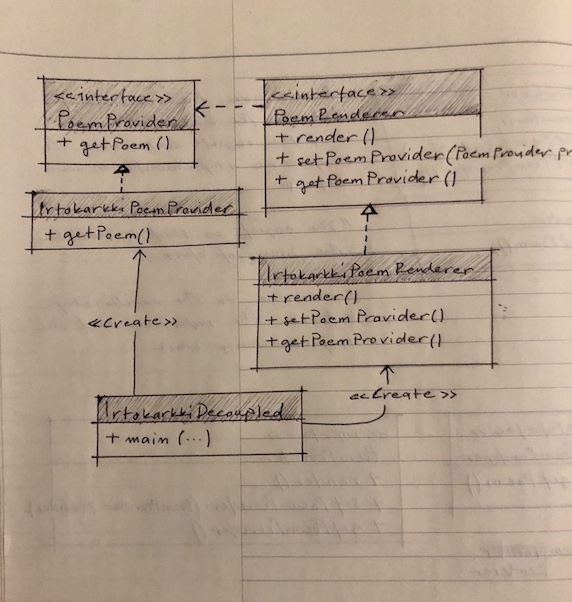 <<interface>>
PoemProvider
+ getPoem()
<<interface>>
PoemRenderer
+ render()
+ setPoemProvider(PoemProvider pr
+ getPoemProvider()
IrtokarkkiPoemProvider
+ getPoem()
IrtokarkkiPoemRenderer
+ render()
+ setPoemProvider()
+ getPoemProvider()
<<Create>>
<<Create>>
IrtokarkkiDecoupled
+ main (...)